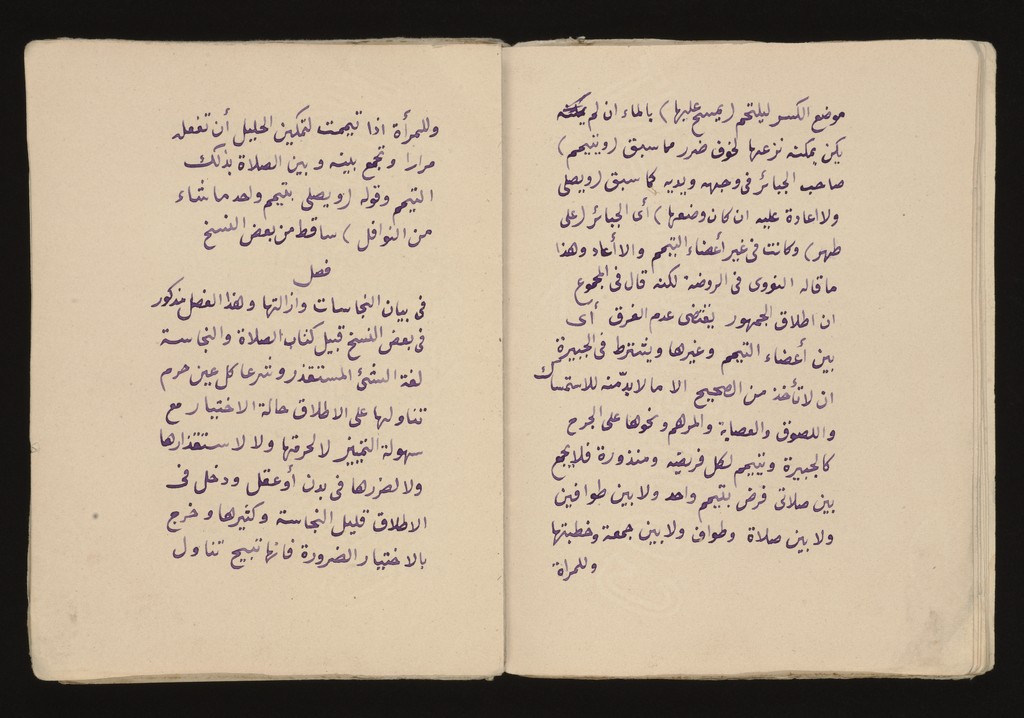 موضع الكسر ليلتحم (يمسح عليها) بالماء ان لم يمكنه
يكن يمكنه نزعها لخوف ضرر مما سبق (ويتيمم)
صاحب الجبائر فى وجهه ويديه كما سبق (ويصلى
ولا اعادة عليه ان كان وضعها) أى الجبائر (على
طهر) وكانت فى غير أعضاء التيمم والا أعاد وهذا
ما قاله النووى فى الروضة لكنه قال فى المجموع
ان اطلاق الجمهور يقتضى عدم الفرق أى
بين أعضاء التيمم وغيرها ويشترط فى الجبيرة
ان لا تأخذ من الصحيح الا ما لا بدّ منه للاستمساك
واللصوق والعصابة والمرهم ونحوها على الجرح
كالجبيرة ويتيمم لكل فريضة ومنذورة فلا يجمع
بين صلاتى فرض بتيمم واحد ولا بين طوافين
ولا بين صلاة وطواف ولا بين جمعة وخطبتها
وللمراة
وللمرأة اذا تيممت لتمكين الحليل أن تفعله
مرارا وتجمع بينه وبين الصلاة بذلك
التيمم وقوله (ويصلى بتيمم واحد ما شاء
من النوافل) ساقط من بعض النسخ
فصل
فى بيان النجاسات وازالتها وهذا الفصل مذكور
فى بعض النسخ قبيل كتاب الصلاة والنجاسة
لغة الشئ المستقذر وشرعا كل عين حرم
تناولها على الاطلاق حالة الاختيار مع
سهولة التمييز لا لحرمتها ولا لاستقذارها
ولا لضررها فى بدن أو عقل ودخل فى
الاطلاق قليل النجاسة وكثيرها وخرج
بالاختيار الضرورة فانها تبيح تناول